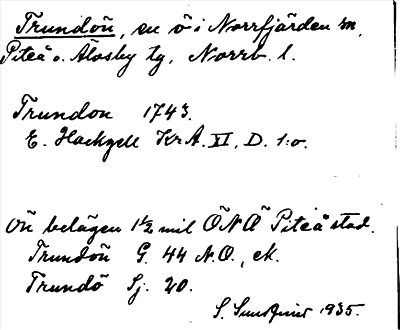 Trundön, en ö i Norrfjärden sn,
Piteå o. Älvsby tg, Norrb. l.
Trundon 1743.
E. Hackzell KrA. XI, D. 1:o.
Ön belägen 1 1/2 mil ÖNÖ Piteå stad.
Trundön G. 44 N.O., ek.
Trundö Sj. 20.
S. 1935.